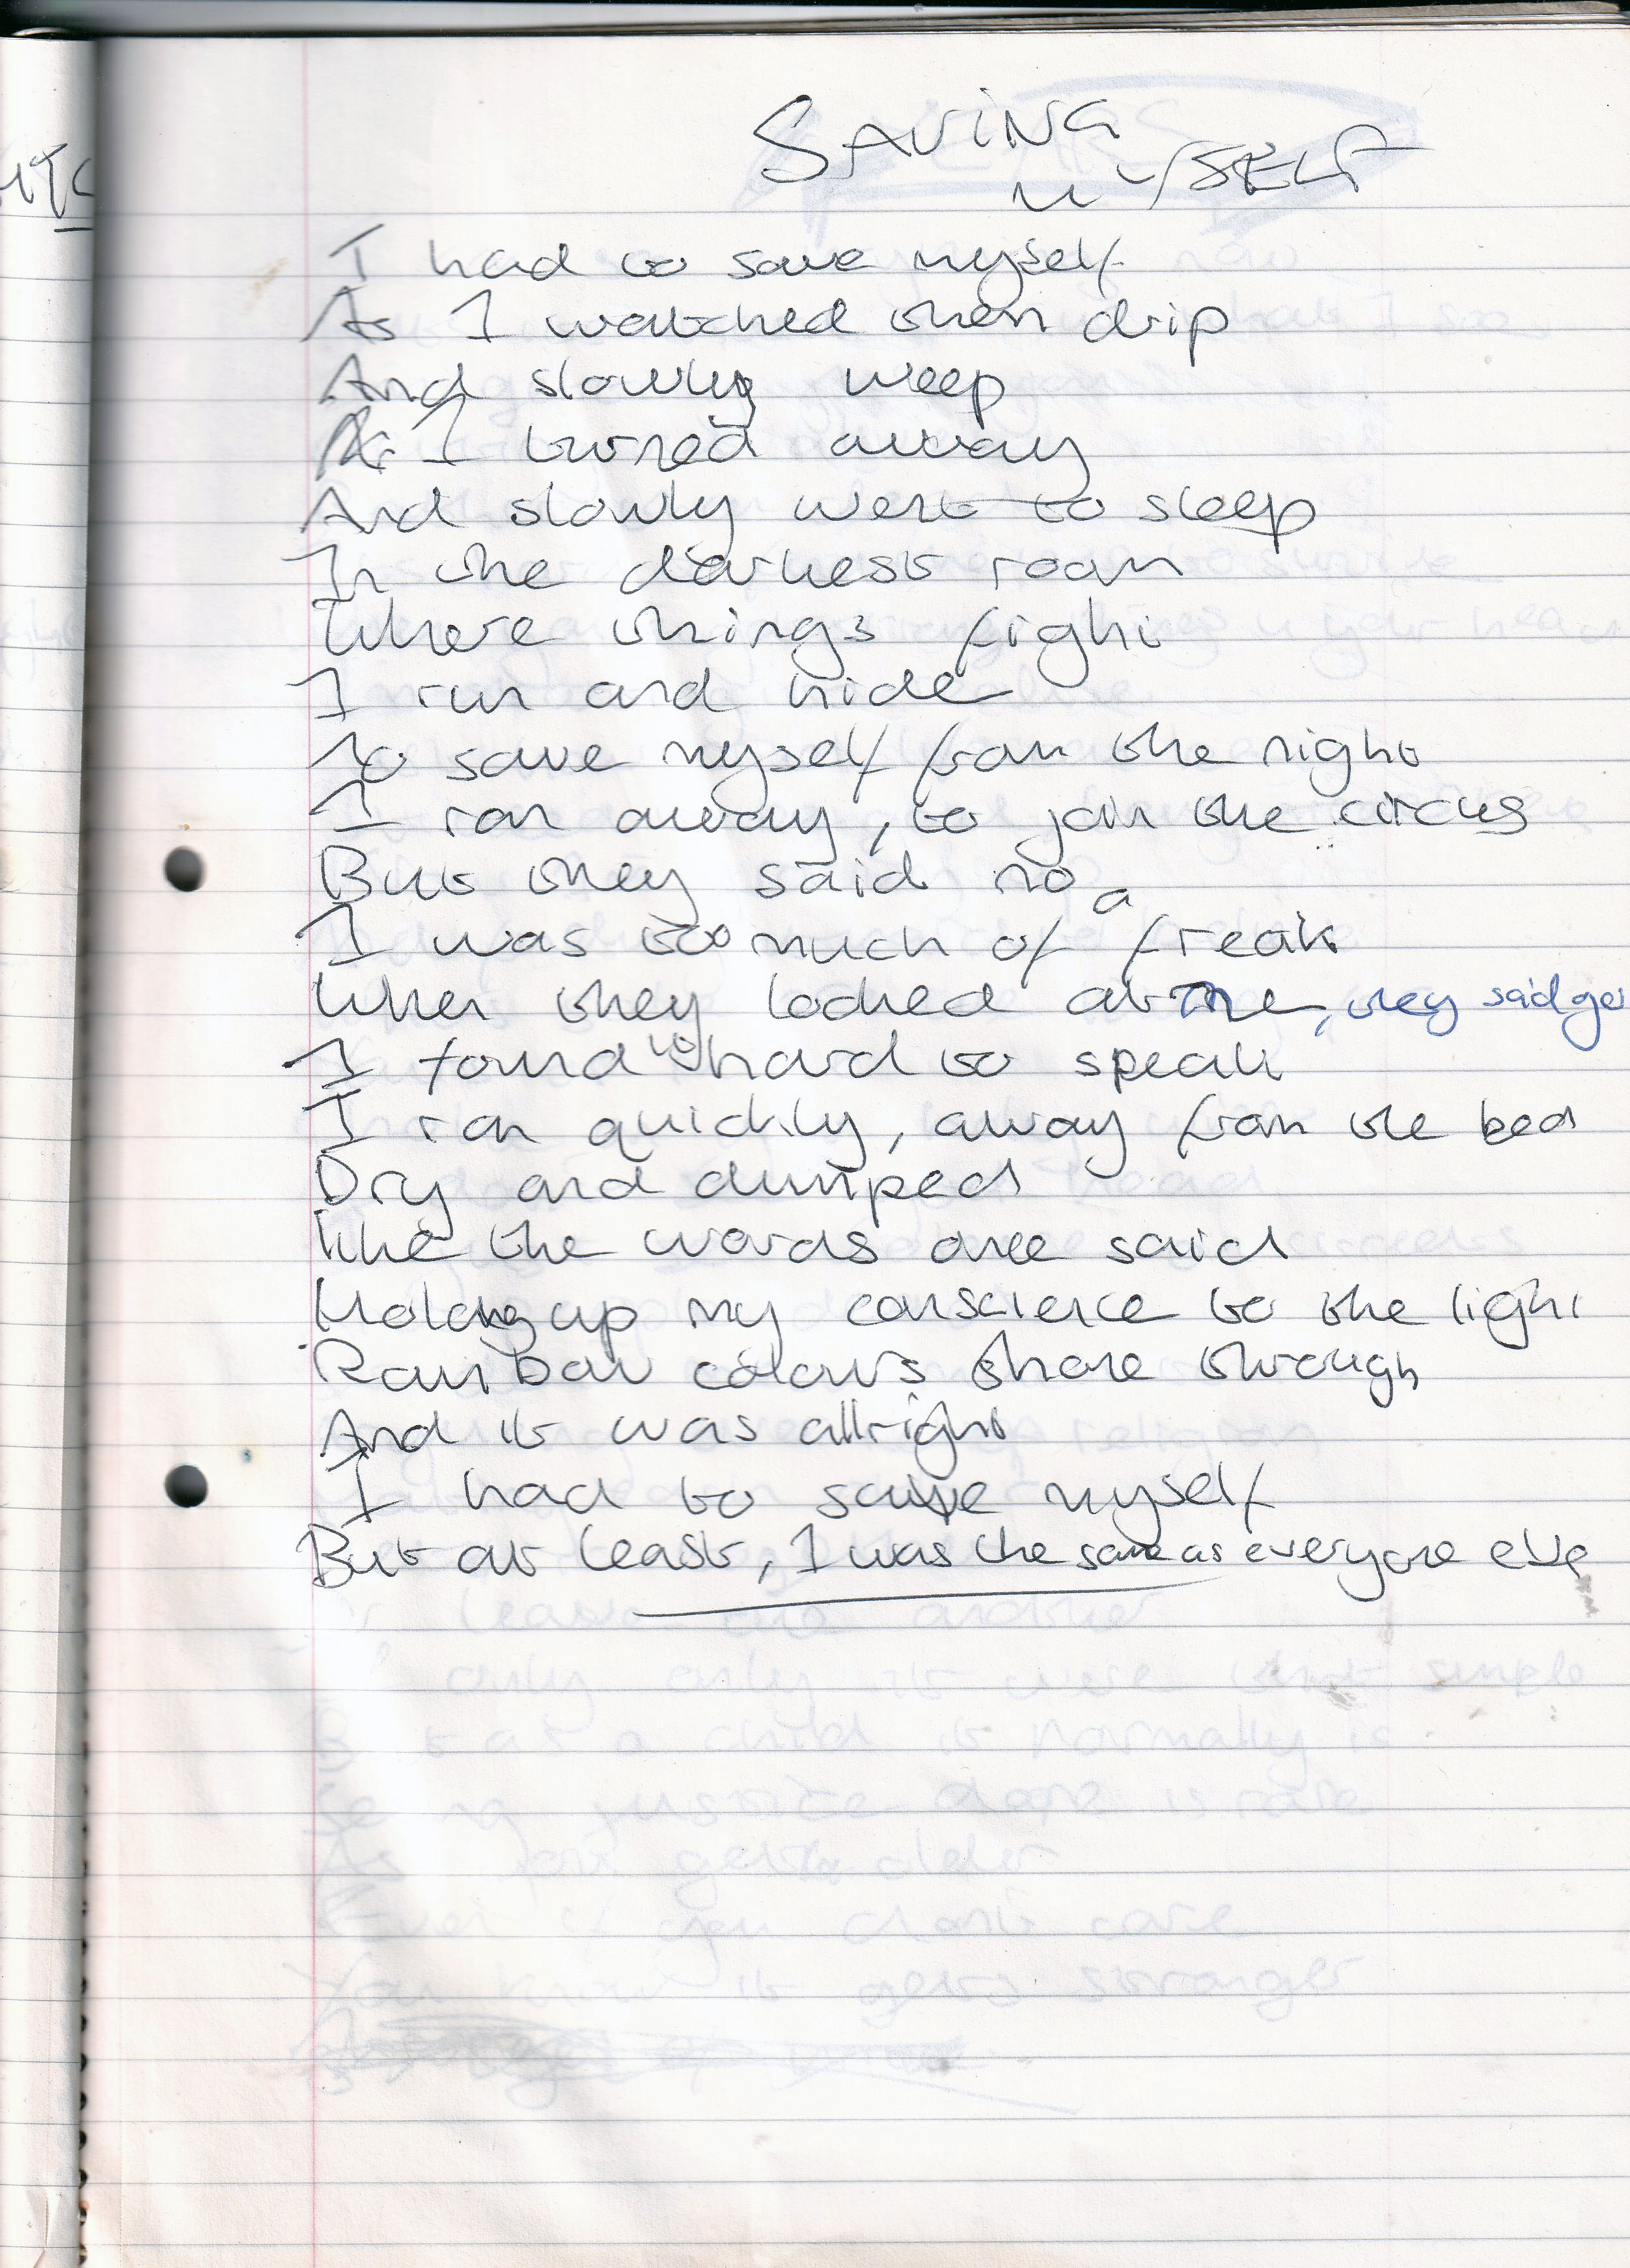 SAVING
MYSELF
I had to save myself
As I watched them drip
And slowly weep
As I turned away
And slowly went to sleep
In the darkest room
Where things fight
I run and hide
To save myself from the night
I ran away, to join the circus
But they said no
I was too much of a freak
When they looked at me, they said go
I found it hard to speak
I ran quickly, away from the bed
Dry and dumped
like the words one said
Holding up my conscience to the light
Rainbow colours shone through
And it was allright
I had to save myself
But at least, I was the same as everyone else